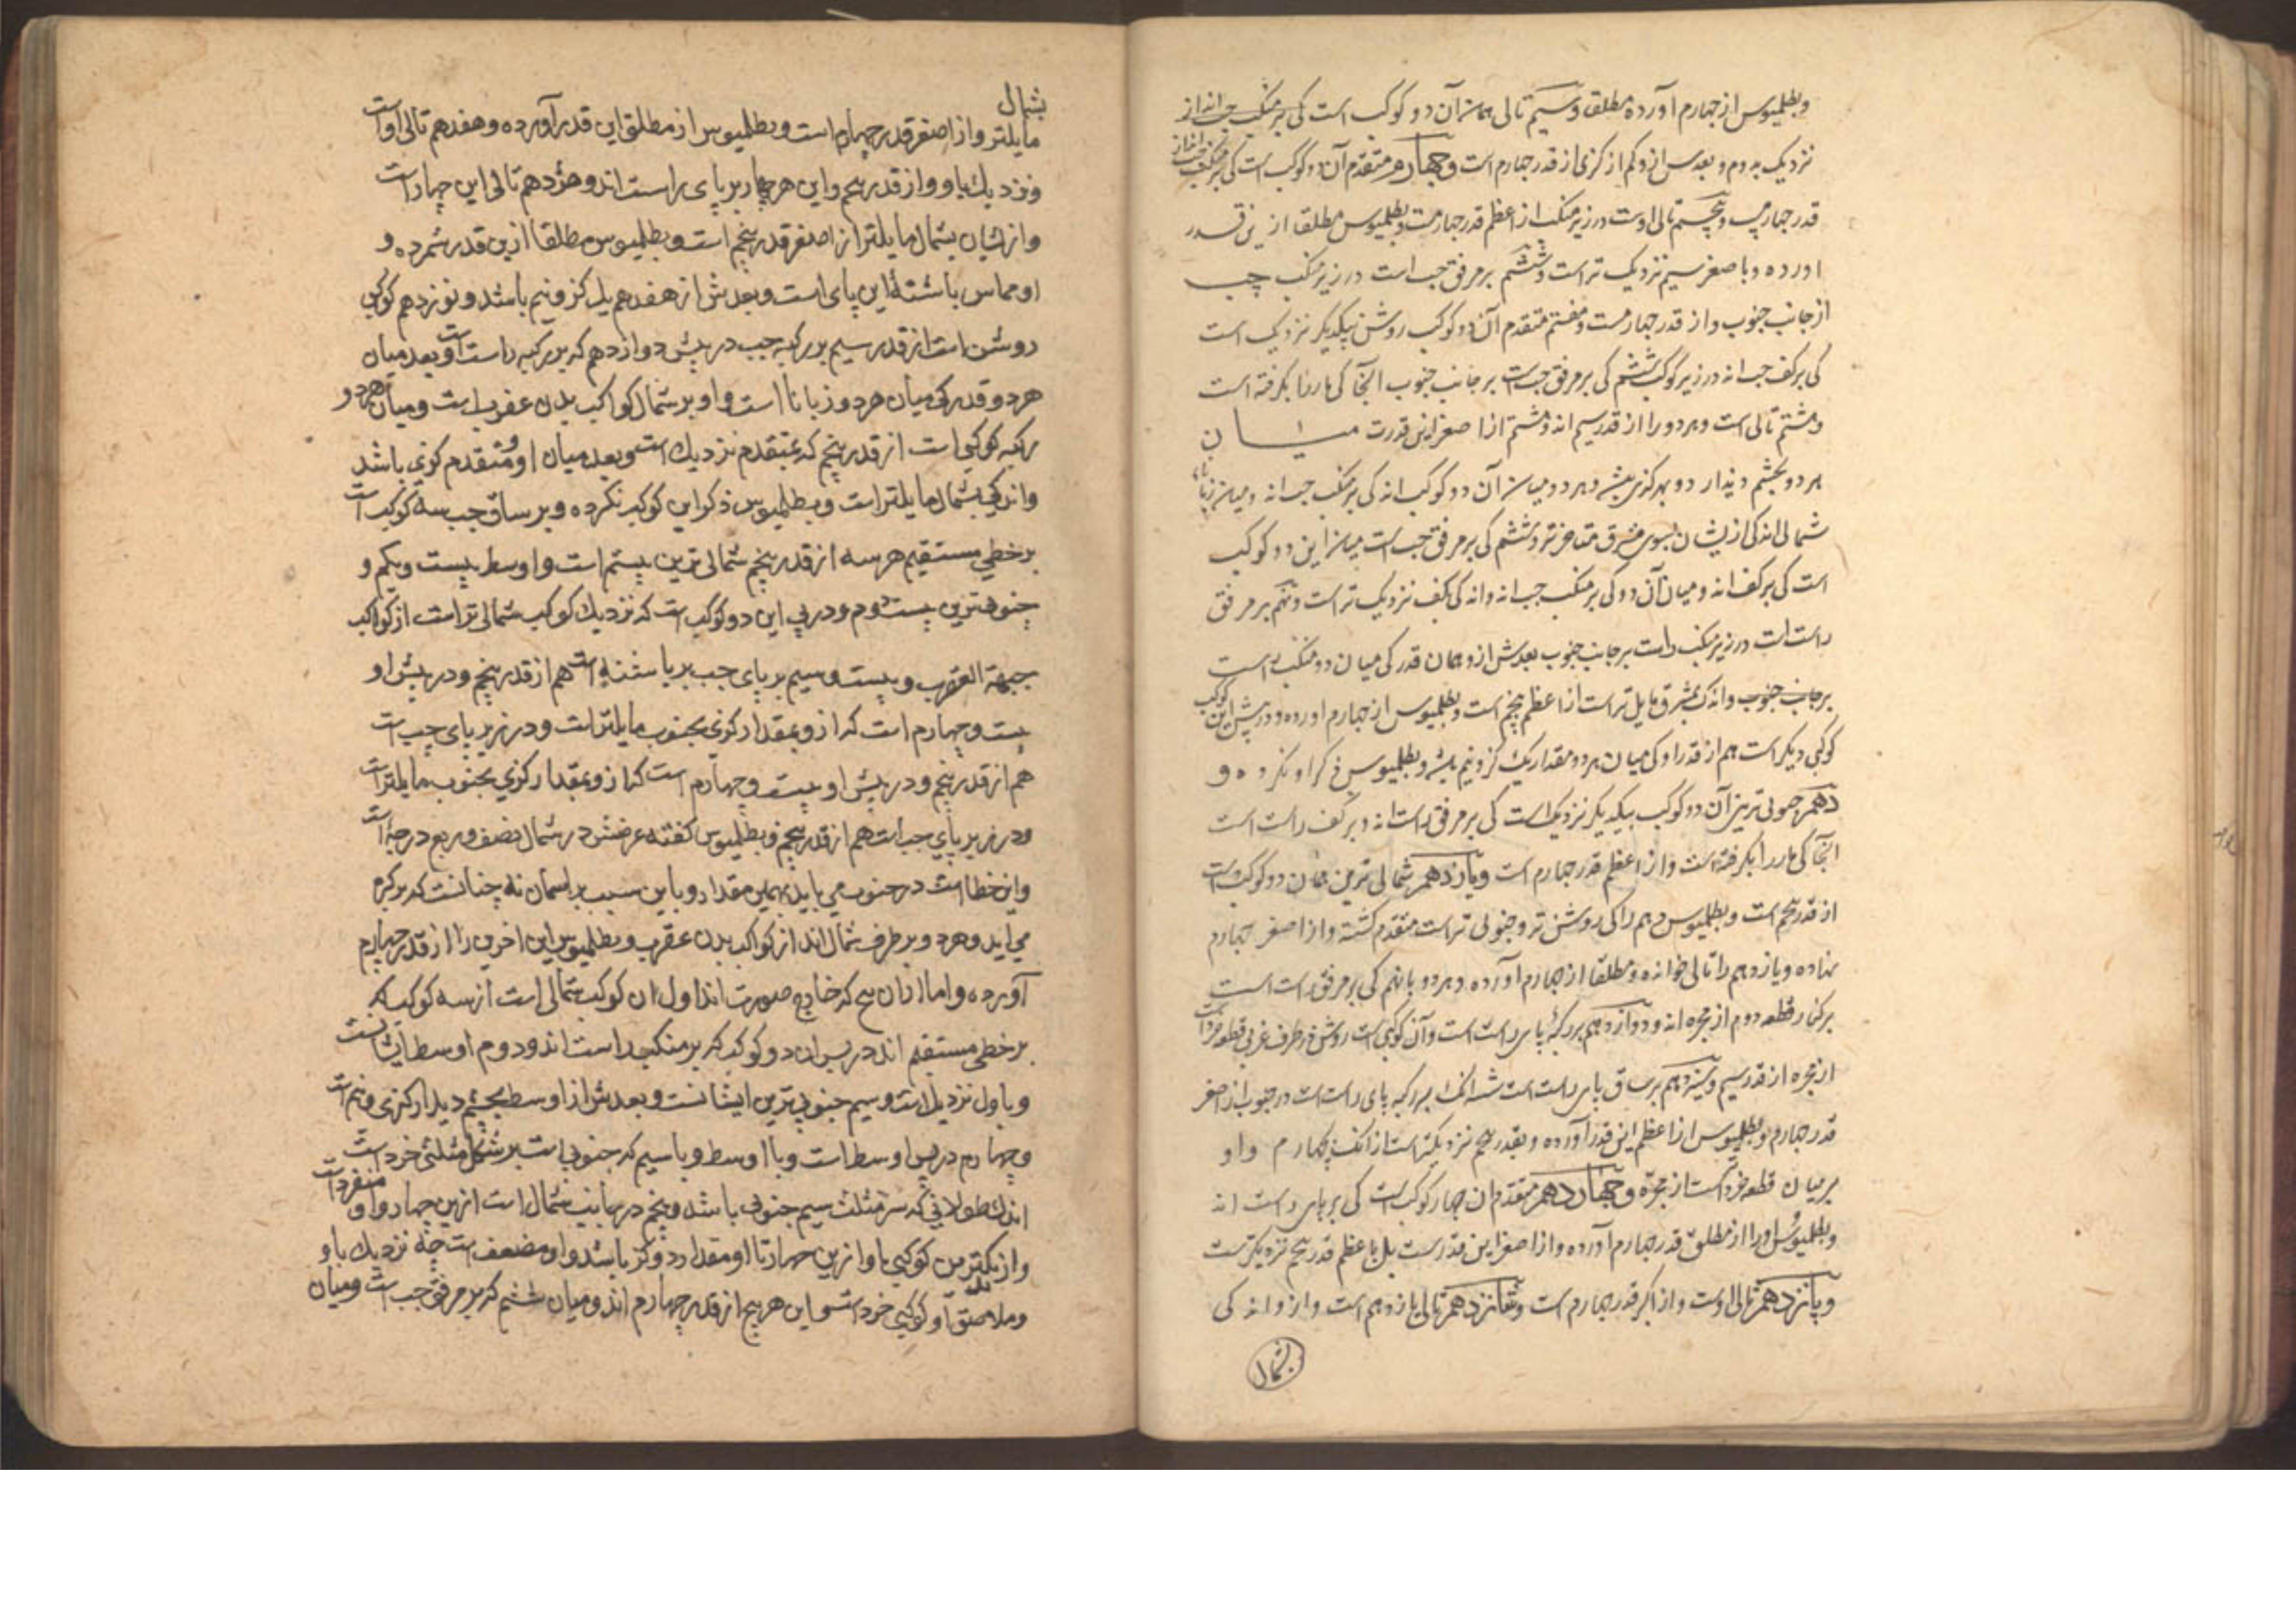 وبطلمیوس از چهارم آورده مطلقا و سیم تالی همان آن دو کوکب است کی بر منکب چپ اند از
نزدیک به دوم و بعدس ازو کم از کزی از قدر چهارم است و چهارم متقدم آن دو کوکب است کی بر منکب چپ اند از
قدر چهارم و پنجم تالی اوست در زیر منکب از اعظم قدر چهارمست و بطلمیوس مطلقا ازین قدر
اورده و باصغر سیم نزدیک تر است و ششم بر مرفق چپ است در زیر منکب چپ
از جانب جنوب و از قدر چهارمست و هفتم متقدم آن دو کوکب روشن بیکدیگر نزدیک است
کی بر کف چپ اند در زیر کوکب ششم کی بر مرفق چپ است بر جانب جنوب آنجا کی مار را بکرفته است
و هشتم تالی است و هر دو را از قدر سیم اند و هشتم از اصغر این قدرت میان
هر دو بچشم دیدار دو بهر کزی بیش و هر دو میان آن دو کوکب اند کی بر منکب چپ اند و میان زبانا
شمالی اند کی ازیشان بسوی مشرق متاخر تر و ششم کی بر مرفق چپ است میان این دو کوکب
است کی بر کف اند و میان آن دو کی بر منکب چپ اند و اند کی بکف نزدیک تر است و نهم بر مرفق
راست است در زیر منکب راست بر جانب جنوب بعدش ازو همان قدر کی میان دو منکب است
بر جانب جنوب و اندک بمشرق مایل تر است از اعظم پنجم است و بطلمیوس از چهارم اورده و در پیش این کوکب
کوکبی دیکر است هم از قدر او کی میان هر دو مقدار یک کز و نیم باشد و بطلمیوس ذکر او نکرده و
دهم جنوبی ترین آن دو کوکب بیکدیکر نزدیک است کی بر مرفق راست اند و بر کف راست است
آنجا کی مار را بکرفته است و از اعظم قدر چهارم است و یازدهم شمالی ترین همان دو کوکب است
از قدر پنجم است و بطلمیوس دهم را کی روشن تر و جنوبی تر است متقدم کشته و از اصغر چهارم
نهاده و یازدهم را تالی خوانده و مطلقا از چهارم آورده و هر دو با نهم کی بر مرفق راست است
بر کنار قطعه دوم از مجره اند و دوازدهم بر رکبهٔ پای راست است و آن کوکبی است روشن در طرف غربی قطعه خرد است
از مجره از قدر سیم و سیزدهم بر ساق پای راست است بر رکبه پای راست است در جنوب از اصغر
قدر چهارم و بطلمیوس از اعظم این قدر آورده و بقدر پنجم نزدیکتر است از انک بچهارم و او
بر میان قطعه خرد است از مجره و چهاردهم متقدم ان چهار کوکب است کی بر پای راست اند
وبطلمیوس اورا از مطلق قدر چهارم آورده و از اصغر این قدرست بل باعظم قدر پنجم نزدیکترست
و پانزدهم تالی اوست و از اکبر قدر چهارم است و شانزدهم تالی پانزدهم است و ازو اند کی
بشمال
بشمال
مایلتر و از اصغر قدر چهارم است و بطلمیوس از مطلق این قدر آورده و هفدهم تالی اوست
و نزدیک باو و از قدر پنجم و این هر چهار بر پای راست اند و هژدهم تالی این چهار است
و ازیشان بشمال مایلتر از اصغر قدر پنجم است و بطلمیوس مطلقا ازین قدر شمرده و
او مماس باشنهٔ این پای است و بعدش از هفدهم یک کز و نیم باشد و نوزدهم کوکبی
روشن است از قدر سیم بر رکبه چپ در پیش دوازدهم که بر رکبه راست است و بعد میان
هر دو قدر کی میان هر دو زبانا است و او بر شمال کواکب بدن عقرب است و میان هر دو
رکبه کوکبی است از قدر پنجم که بمتقدم نزدیک است و بعد میان او و متقدم کزی باشد
و اندکی بشمال مایلتر است و بطلمیوس ذکر این کوکب نکرده و بر ساق چپ سه کوکب است
بر خطی مستقیم هر سه از قدر پنجم شمالی ترین بیستم است و اوسط بیست و یکم و
جنوبی ترین بیست و دوم و در پی این دو کوکب است که نزدیک کوکب شمالی تر است از کواکب
جبهة العقرب و بیست و سیم بر پای چپ بر پاشنه است هم از قدر پنجم و در پیش او
بیست و چهارم است که ازو بمقدار کزی بجنوب مایلتر است و در زیر پای چپ است
هم از قدر پنجم و در پیش او بیست و چهارم است که ازو بمقدار کزی بجنوب مایلتر است
و در زیر پای چپ است هم از قدر پنجم و بطلمیوس کفته عرضش در شمال نصف و ربع درجه است
و این خطا است در جنوب می باید بهمین مقدار و باین سبب بر اسمان نه چنانست که بر کره
می اید و هر دو بر طرف شمال اند از کواکب بدن عقرب و بطلمیوس این اخرین را از قدر چهارم
آورده و اما ازان پنج که خارج صورت اند اول ان کوکب شمالی است از سه کوکب که
بر خطی مستقیم اند در پس ان دو کوکب که بر منکب راست اند و دوم اوسط ایشانست
و باول نزدیک است و سیم جنوبی ترین ایشانست و بعدش از اوسط بچشم دیدار کزی و نیم است
و چهارم در پس اوسط است و با اوسط و با سیم که جنوبی است بر شکل مثلثی خرد است
اندک طولانی که سر مثلث سیم جنوبی باشد و پنجم در جانب شمال است ازین چهار و او منفرد است
و از کوکبی باو ازین چهار تا او مقدار دو کز باشد و او مضعف است چه نزدیک باو
و ملاصق او کوکبی خرد است و این هر پنج از قدر چهارم اند و میان ششم که بر مرفق چپ است و میان